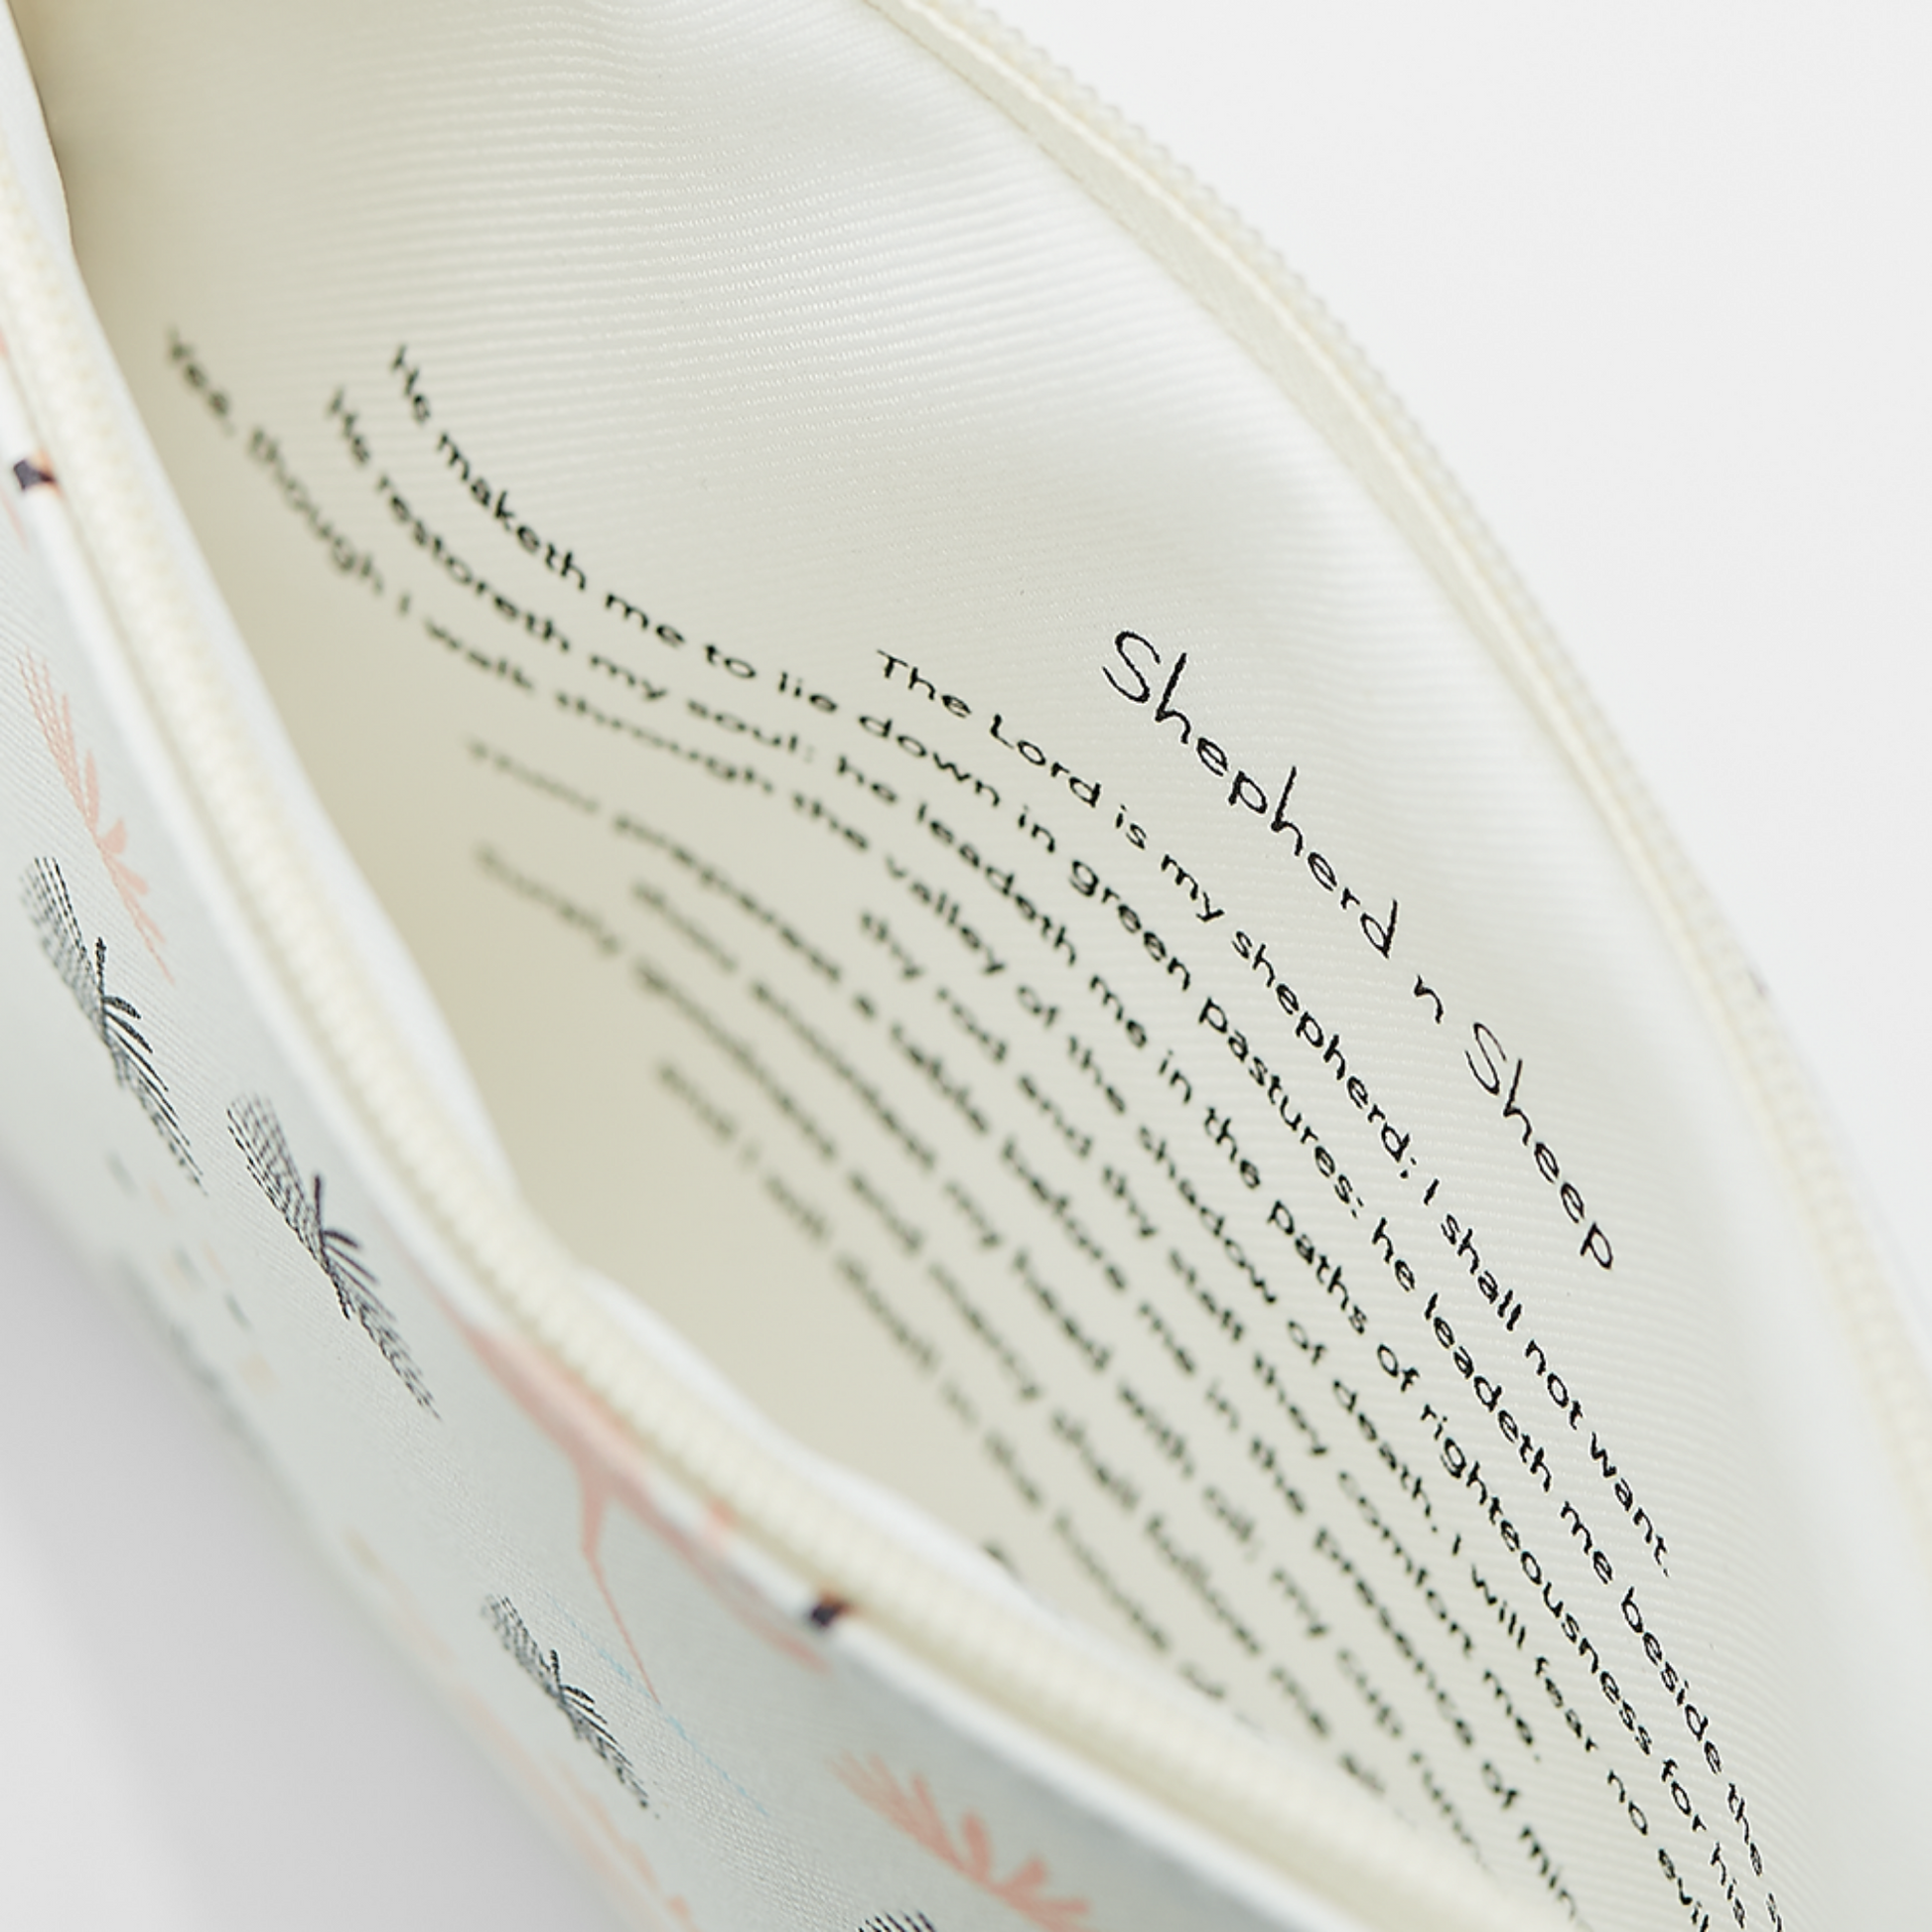 Shepherd n Sheep
The Lord is my shepherd; I shall not want.
He maketh me to lie down in green pastures: he leadeth me beside the
He restoreth my soul: he leadeth me in the paths of righteousness for his
Yea, though I walk through the valley of the shadow of death, I will fear no evil
thy rod and thy staff they comfort me.
preparest a table before me in the presence of min
anointest my head with oil; my cup runn
Surely goodness and mercy shall follow me all
and I will dwell in the house of